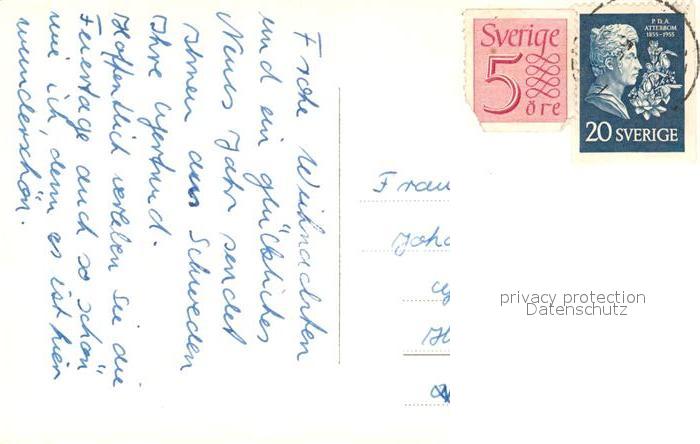 Frohe Weihnachten
und ein glückliches
Neues Jahr sendet
Ihnen aus Schweden
Ihre
Hoffentlich verleben Sie die
Feiertage auch so schön
wie ich, denn es ist hier
wunderschön.
Frau
Joha
Sverige
5
öre
P.D.A.
ATTERBOM
1855-1955
20 SVERIGE
privacy protection
Datenschutz